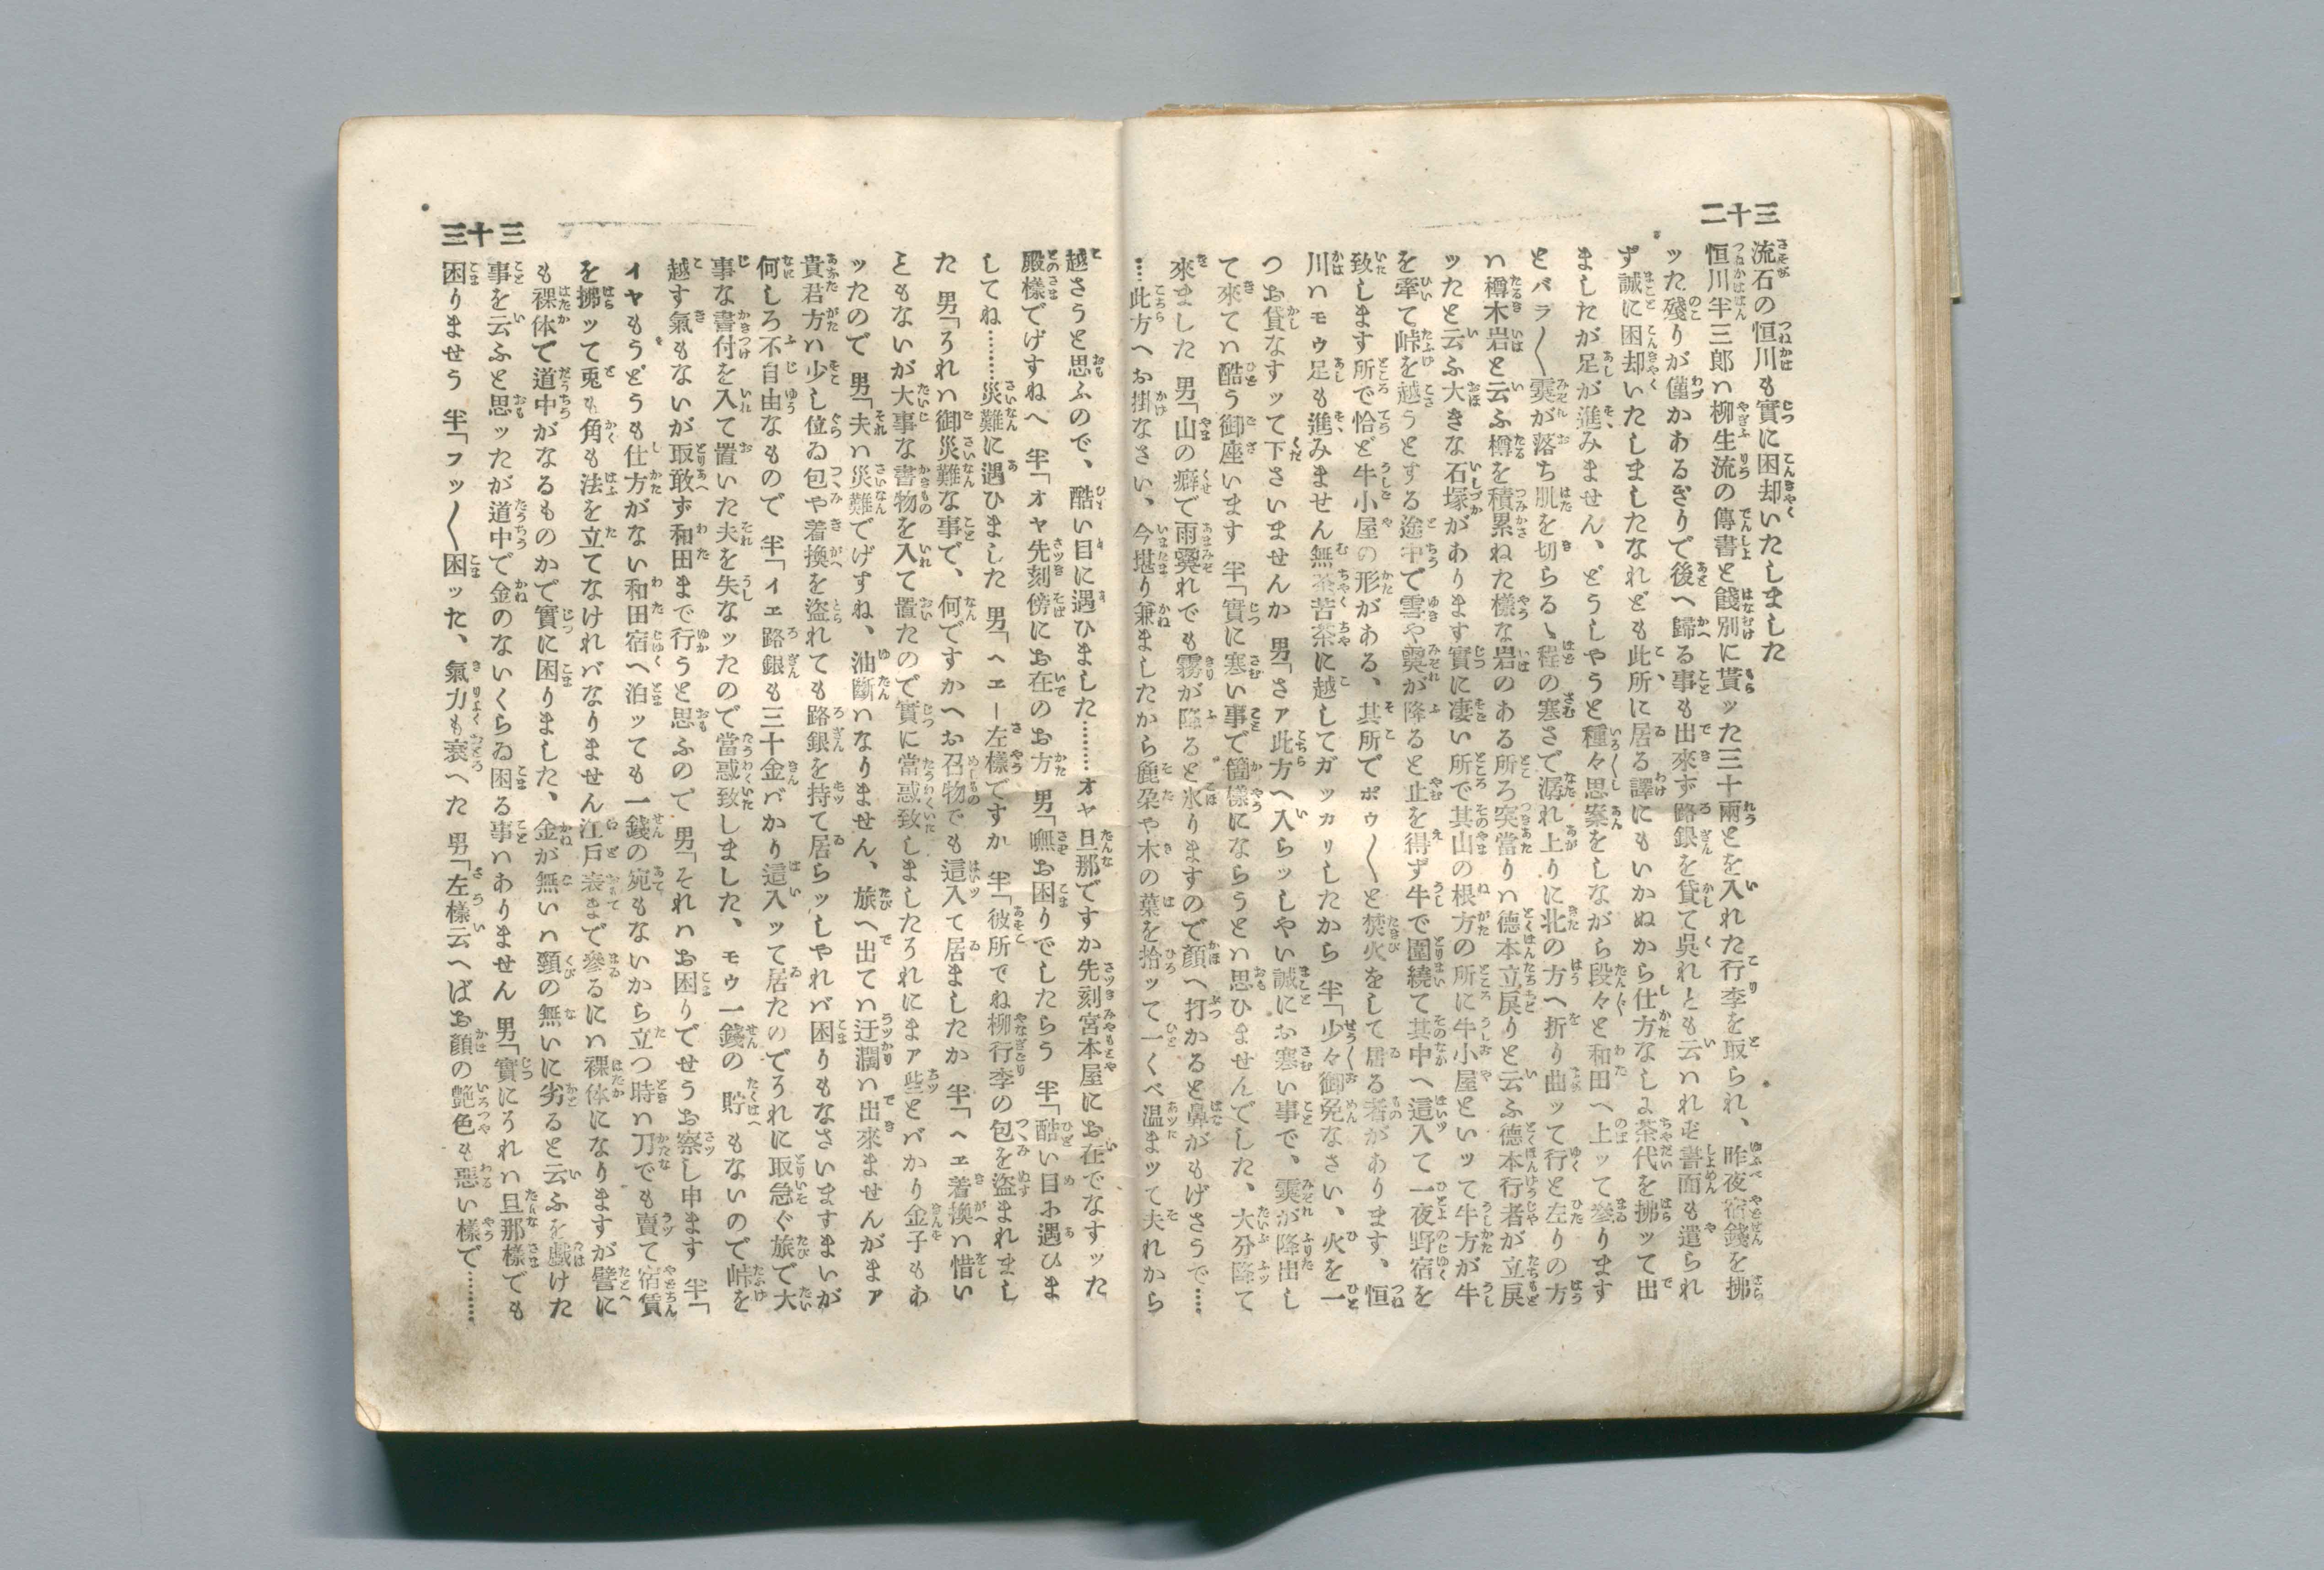 二十三
流石の恒川も實に困却いたしました
恒川半三郎ハ柳生流の傳書と餞別に貰ッた三十兩とを入れた行李を取られ、昨夜宿錢を拂
ッた殘りが僅かあるぎりで後へ歸る事も出來ず路銀を貸て呉れとも云ハれず書面も遣られ
ず誠に困却いたしましたなれども此所に居る譯にもいかぬから仕方なしよ茶代を拂ッて出
ましたが足が進みません、どうしやうと種々思案をしながら段々と和田へ上ッて參ります
とバラ〳〵霙が落ち肌を切らるゝ程の寒さで潺れ上りに北の方へ折り曲ッて行と左りの方
ハ樽木岩と云ふ樽を積累ねた樣な岩のある所ろ突當りハ德本立戾りと云ふ德本行者が立戾
ッたと云ふ大きな石塚があります實に凄い所で其山の根方の所に牛小屋といッて牛方が牛
を牽て峠を越うとする途中で雪や霙が降ると止を得ず牛で圍繞て其中へ這入て一夜野宿を
致します所で恰ど牛小屋の形がある、其所でポゥ〳〵と焚火をして居る者があります、恒
川ハモゥ足も進みません無茶苦茶に越してガッカリしたから　半「少々御免なさい、火を一
つお貸なすッて下さいませんか　男「さァ此方へ入らッしやい誠にお寒い事で、霙が降出し
て來てハ酷う御座います　半「實に寒い事で箇樣にならうとハ思ひませんでした、大分降て
來ました　男「山の癖で雨霙れでも霧が降ると氷りますので顏へ打かると鼻がもげさうで……
…此方へお掛なさい、今堪り兼ましたから麁朶や木の葉を拾ッて一くべ温まッて夫れから
三十三
越さうと思ふので、酷い目に遇ひました………オヤ旦那ですか先刻宮本屋にお在でなすッた
殿樣でげすねへ　半「オヤ先刻傍にお在のお方　男「嘸お困りでしたらう　半「酷い目お遇ひま
してね………災難に遇ひました　男「ヘエー左樣ですか　半「彼所でね柳行李の包を盜まれまし
た　男「ろれハ御災難な事で、何ですかへお召物でも這入て居ましたか　半「ヘェ着換ハ惜い
ともないが大事な書物を入て置たので實に當惑致しましたろれにまァ些とバかり金子もあ
ッたので　男「夫ハ災難でげすね、油斷ハなりません、旅へ出てハ迂濶ハ出來ませんがまァ
貴君方ハ少し位ゐ包や着換を盜れても路銀を持て居らッしやれバ困りもなさいますまいが
何しろ不自由なもので　半「イエ路銀も三十金バかり這入ッて居たのでろれに取急ぐ旅で大
事な書付を入て置いた夫を失なッたので當惑致しました、モゥ一錢の貯へもないので峠を
越す氣もないが取敢ず和田まで行うと思ふので　男「それハお困りでせうお察し申ます　半「
イヤもうどうも仕方がない和田宿へ泊ッても一錢の宛もないから立つ時ハ刀でも賣て宿賃
を拂ッて兎も角も法を立てなけれバなりません江戸表まで參るにハ裸体になりますが譬に
も裸体で道中がなるものかで實に困りました、金が無いハ頸の無いに劣ると云ふを戲けた
事を云ふと思ッたが道中で金のないくらゐ困る事ハありません　男「實にろれハ旦那樣でも
困りませう　半「フッ〳〵困ッた、氣力も衰へた　男「左樣云へばお顏の艶色も惡い樣で………